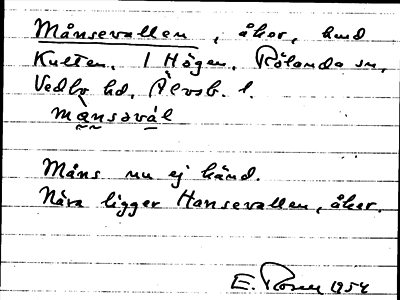 Månsevallen, åker, hmd
Kulten. 1 Högen. Rölanda sn,
Vedbo hd, Älvsb. l.
månsəvál
Måns nu ej känd.
Nära ligger Hansevallen, åker.
E. Rosell 1954